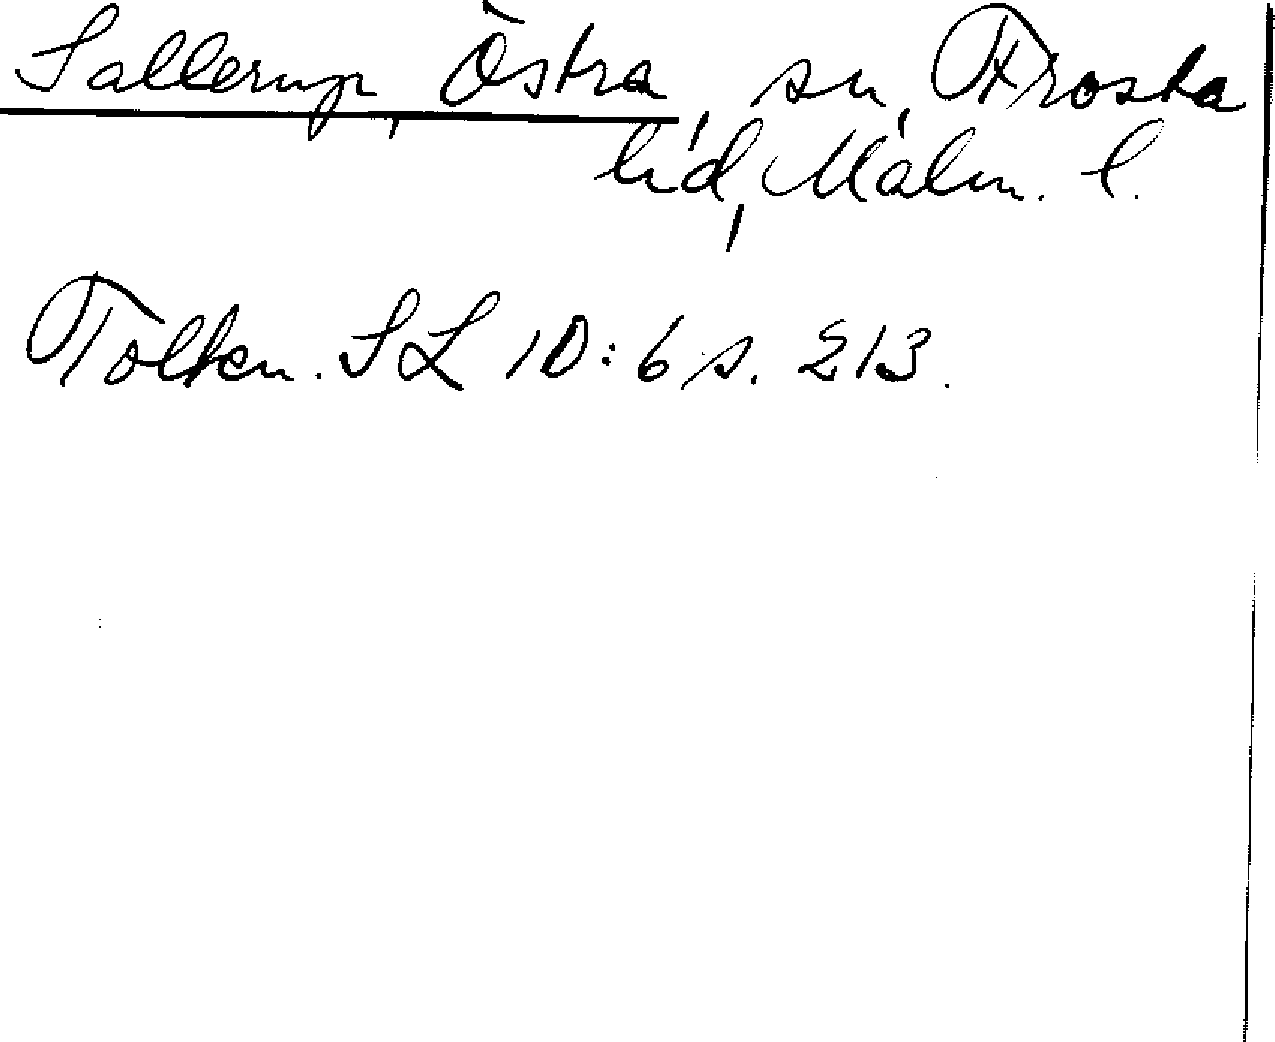 Sallerup, Östra, sn, Frosta
hd, Malm. l.
Tolkn. SL 10:6 s. 213.